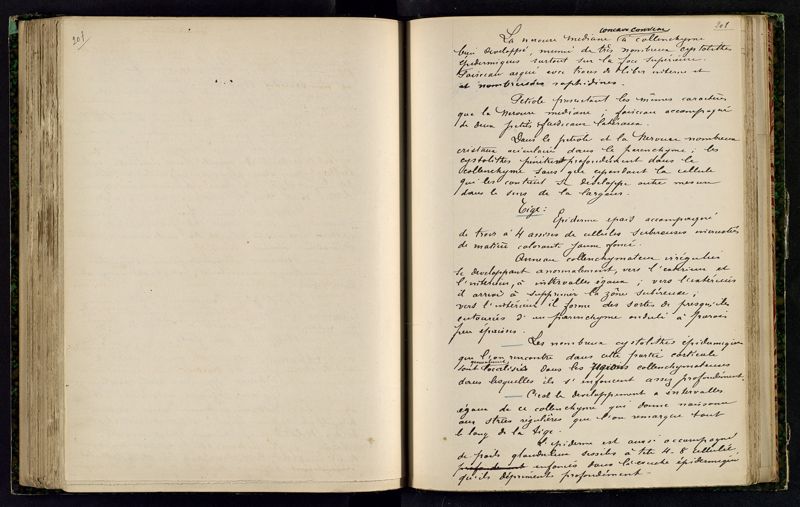 208
208
concave convexe
La nervure mediane à collenchyme
bien developpé, muni de très nombreux cystolithes
épidermiques surtout sur la face superieure.
Faisceau arqué avec traces de liber interne et
et nombreuses raphidines.
Petiole presentant les mêmes caractères
que la Nervure mediane; faisceau accompagné
de deux petits faisceaux lateraux.
Dans le petiole et la Nervure nombreux
cristaux aciculaires dans le parenchyme; les
cystolithes pénètrent profondément dans le
collenchyme sans que cependant la cellule
qui les contient se développe outre mesure
dans le sens de la largeur.
Tige:
Epiderme epais accompagné
de trois à 4 assises de cellules subereuses incrustées
de matière colorante jaune foncé.
Anneau collenchymateux irrégulier
se developpant anormalement, vers l'exterieur et
l'interieur, à intervalles égaux; vers l'exterieur
il arrive à supprimer la zône subéreuse;
vers l'intérieur il forme des sortes de presqu'iles
entourées d'un parenchyme ondulé à parois
peu épaisses.
Les nombreux cystolithes épidermiques
que l'on rencontre dans cette partie corticale
sont localisés dans les régions collenchymateuses
dans lesquelles ils s'enfoncent assez profondément.
C'est le developpement a intervalles
égaux de ce collenchyme qui donne naissance
aux stries régulières que l'on remarque tout
le long de la tige.
L'epiderme est aussi accompagné
de poils glanduleux sessiles à tête 4-8 cellules,
profondement enfoncés dans la couche épidermique
qu'ils dépriment profondément.